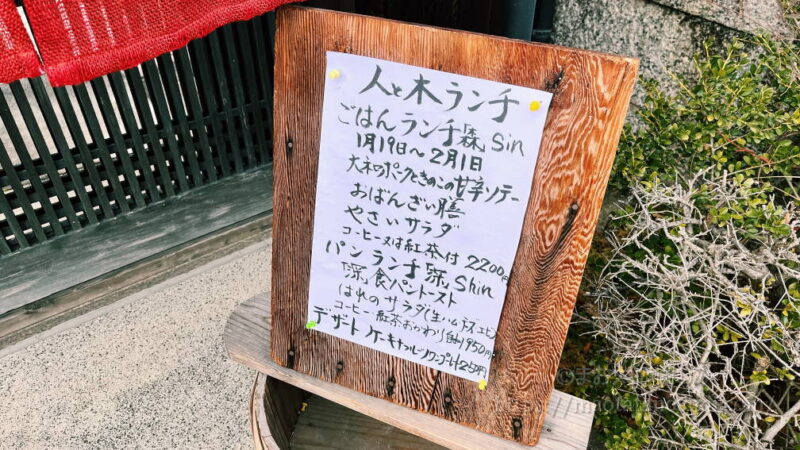 人と木ランチ
ごはんランチ 森 Sin
1月19日～2月1日
大ネワポークときのこの甘辛ソテー
おばんざい膳
やさいサラダ
コーヒー又は紅茶付 2200円
パンランチ 深 Shin
「深」食パントースト
はれのサラダ(生ハム
コーヒー・紅茶おかわり自由)1950円
デザート ケーキ
250円